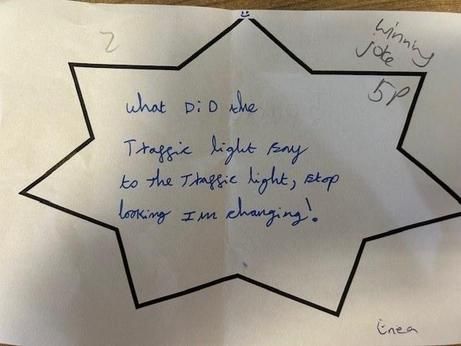 2
winning
joke
5P
What DiD the
Traffic light say
to the Traffic light, stop
looking Im changing!
Enea